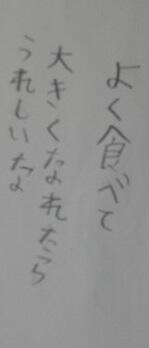 よく食べて
大きくなれたら
うれしいな